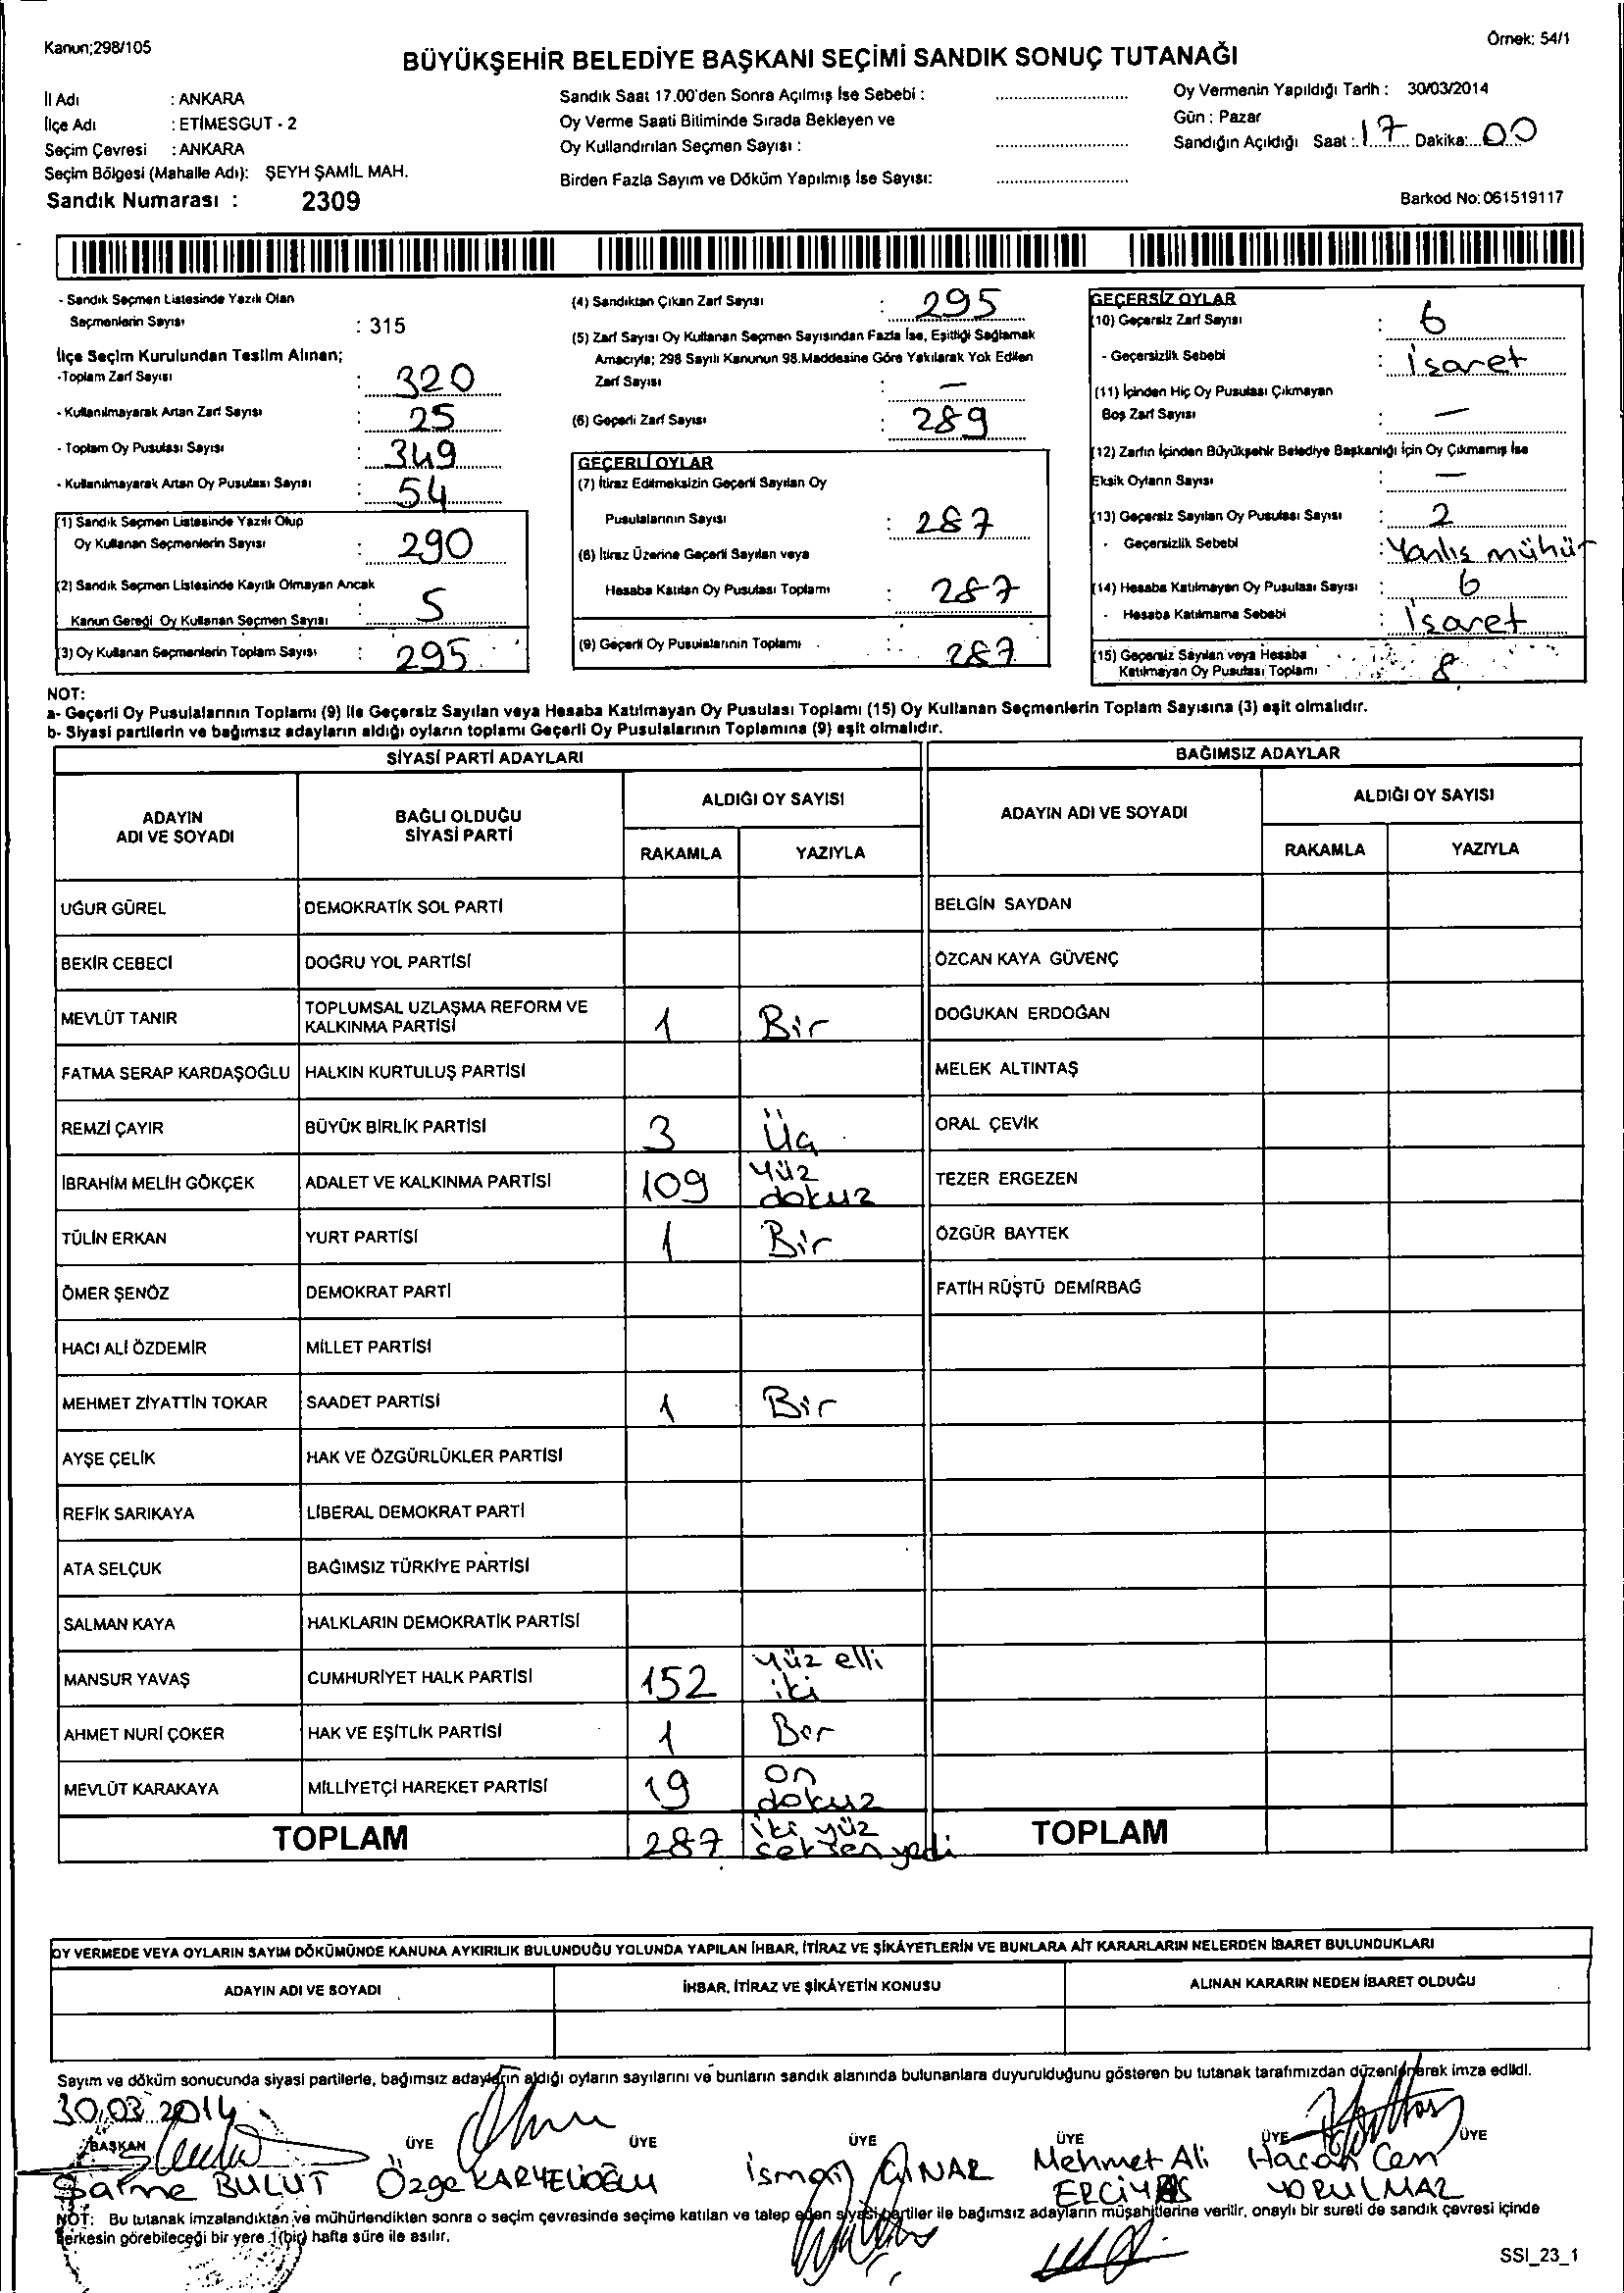 Kanun;298/105
Örnek: 54/1
BÜYÜKŞEHİR BELEDİYE BAŞKANI SEÇİMİ SANDIK SONUÇ TUTANAĞI
İl Adı : ANKARA
İlçe Adı : ETİMESGUT - 2
Seçim Çevresi : ANKARA
Seçim Bölgesi (Mahalle Adı): ŞEYH ŞAMİL MAH.
Sandık Numarası : 2309
Sandık Saat 17.00'den Sonra Açılmış İse Sebebi :
Oy Verme Saati Bitiminde Sırada Bekleyen ve
Oy Kullandırılan Seçmen Sayısı :
Birden Fazla Sayım ve Döküm Yapılmış İse Sayısı:
Oy Vermenin Yapıldığı Tarih : 30/03/2014
Gün : Pazar
Sandığın Açıldığı Saat : 17 Dakika: 00
Barkod No: 061519117
- Sandık Seçmen Listesinde Yazılı Olan
Seçmenlerin Sayısı : 315
İlçe Seçim Kurulundan Teslim Alınan;
-Toplam Zarf Sayısı : 320
- Kullanılmayarak Artan Zarf Sayısı : 25
- Toplam Oy Pusulası Sayısı : 349
- Kullanılmayarak Artan Oy Pusulası Sayısı : 54
(1) Sandık Seçmen Listesinde Yazılı Olup
Oy Kullanan Seçmenlerin Sayısı : 290
(2) Sandık Seçmen Listesinde Kayıtlı Olmayan Ancak
Kanun Gereği Oy Kullanan Seçmen Sayısı : 5
(3) Oy Kullanan Seçmenlerin Toplam Sayısı : 295
(4) Sandıktan Çıkan Zarf Sayısı : 295
(5) Zarf Sayısı Oy Kullanan Seçmen Sayısından Fazla İse, Eşitliği Sağlamak
Amacıyla; 298 Sayılı Kanunun 98.Maddesine Göre Yakılarak Yok Edilen
Zarf Sayısı : –
(6) Geçerli Zarf Sayısı : 289
GEÇERLİ OYLAR
(7) İtiraz Edilmeksizin Geçerli Sayılan Oy
Pusulalarının Sayısı : 287
(8) İtiraz Üzerine Geçerli Sayılan veya
Hesaba Katılan Oy Pusulası Toplamı : 287
(9) Geçerli Oy Pusulalarının Toplamı : 287
GEÇERSİZ OYLAR
(10) Geçersiz Zarf Sayısı : 6
- Geçersizlik Sebebi : İsaret
(11) İçinden Hiç Oy Pusulası Çıkmayan
Boş Zarf Sayısı : –
(12) Zarfın İçinden Büyükşehir Belediye Başkanlığı İçin Oy Çıkmamış İse
Eksik Oyların Sayısı : –
(13) Geçersiz Sayılan Oy Pusulası Sayısı : 2
- Geçersizlik Sebebi : Yanlış mühür
(14) Hesaba Katılmayan Oy Pusulası Sayısı : 6
- Hesaba Katılmama Sebebi : İsaret
(15) Geçersiz Sayılan veya Hesaba
Katılmayan Oy Pusulası Toplamı : 8
NOT:
a- Geçerli Oy Pusulalarının Toplamı (9) ile Geçersiz Sayılan veya Hesaba Katılmayan Oy Pusulası Toplamı (15) Oy Kullanan Seçmenlerin Toplam Sayısına (3) eşit olmalıdır.
b- Siyasi partilerin ve bağımsız adayların aldığı oyların toplamı Geçerli Oy Pusulalarının Toplamına (9) eşit olmalıdır.
SİYASİ PARTİ ADAYLARI BAĞIMSIZ ADAYLAR
ADAYIN ADI VE SOYADI BAĞLI OLDUĞU SİYASİ PARTİ ALDIĞI OY SAYISI ADAYIN ADI VE SOYADI ALDIĞI OY SAYISI
RAKAMLA YAZIYLA RAKAMLA YAZIYLA
UĞUR GÜREL DEMOKRATİK SOL PARTİ BELGİN SAYDAN
BEKİR CEBECİ DOĞRU YOL PARTİSİ ÖZCAN KAYA GÜVENÇ
MEVLÜT TANIR TOPLUMSAL UZLAŞMA REFORM VE KALKINMA PARTİSİ 1 Bir DOĞUKAN ERDOĞAN
FATMA SERAP KARDAŞOĞLU HALKIN KURTULUŞ PARTİSİ MELEK ALTINTAŞ
REMZİ ÇAYIR BÜYÜK BİRLİK PARTİSİ 3 Üç ORAL ÇEVİK
İBRAHİM MELİH GÖKÇEK ADALET VE KALKINMA PARTİSİ 109 Yüz dokuz TEZER ERGEZEN
TÜLİN ERKAN YURT PARTİSİ 1 Bir ÖZGÜR BAYTEK
ÖMER ŞENÖZ DEMOKRAT PARTİ FATİH RÜŞTÜ DEMİRBAĞ
HACI ALİ ÖZDEMİR MİLLET PARTİSİ
MEHMET ZİYATTİN TOKAR SAADET PARTİSİ 1 Bir
AYŞE ÇELİK HAK VE ÖZGÜRLÜKLER PARTİSİ
REFİK SARIKAYA LİBERAL DEMOKRAT PARTİ
ATA SELÇUK BAĞIMSIZ TÜRKİYE PARTİSİ
SALMAN KAYA HALKLARIN DEMOKRATİK PARTİSİ
MANSUR YAVAŞ CUMHURİYET HALK PARTİSİ 152 Yüz elli iki
AHMET NURİ ÇOKER HAK VE EŞİTLİK PARTİSİ 1 Bir
MEVLÜT KARAKAYA MİLLİYETÇİ HAREKET PARTİSİ 19 On dokuz
TOPLAM 287 iki yüz seksen yedi TOPLAM
OY VERMEDE VEYA OYLARIN SAYIM DÖKÜMÜNDE KANUNA AYKIRILIK BULUNDUĞU YOLUNDA YAPILAN İHBAR, İTİRAZ VE ŞİKÂYETLERİN VE BUNLARA AİT KARARLARIN NELERDEN İBARET BULUNDUKLARI
ADAYIN ADI VE SOYADI İHBAR, İTİRAZ VE ŞİKÂYETİN KONUSU ALINAN KARARIN NEDEN İBARET OLDUĞU
Sayım ve döküm sonucunda siyasi partilerle, bağımsız adayların aldığı oyların sayılarını ve bunların sandık alanında bulunanlara duyurulduğunu gösteren bu tutanak tarafımızdan düzenlenerek imza edildi.
30.03.2014
BAŞKAN ÜYE ÜYE ÜYE ÜYE ÜYE ÜYE
BULUT Özge KARYELİOĞLU İsmail ÇINAR Mehmet Ali ERCİYAS Hasan Cem YORULMAZ
NOT: Bu tutanak imzalandıktan ve mühürlendikten sonra o seçim çevresinde seçime katılan ve talep eden siyasi partiler ile bağımsız adayların müşahitlerine verilir, onaylı bir sureti de sandık çevresi içinde
herkesin görebileceği bir yere 1(bir) hafta süre ile asılır.
SSI_23_1